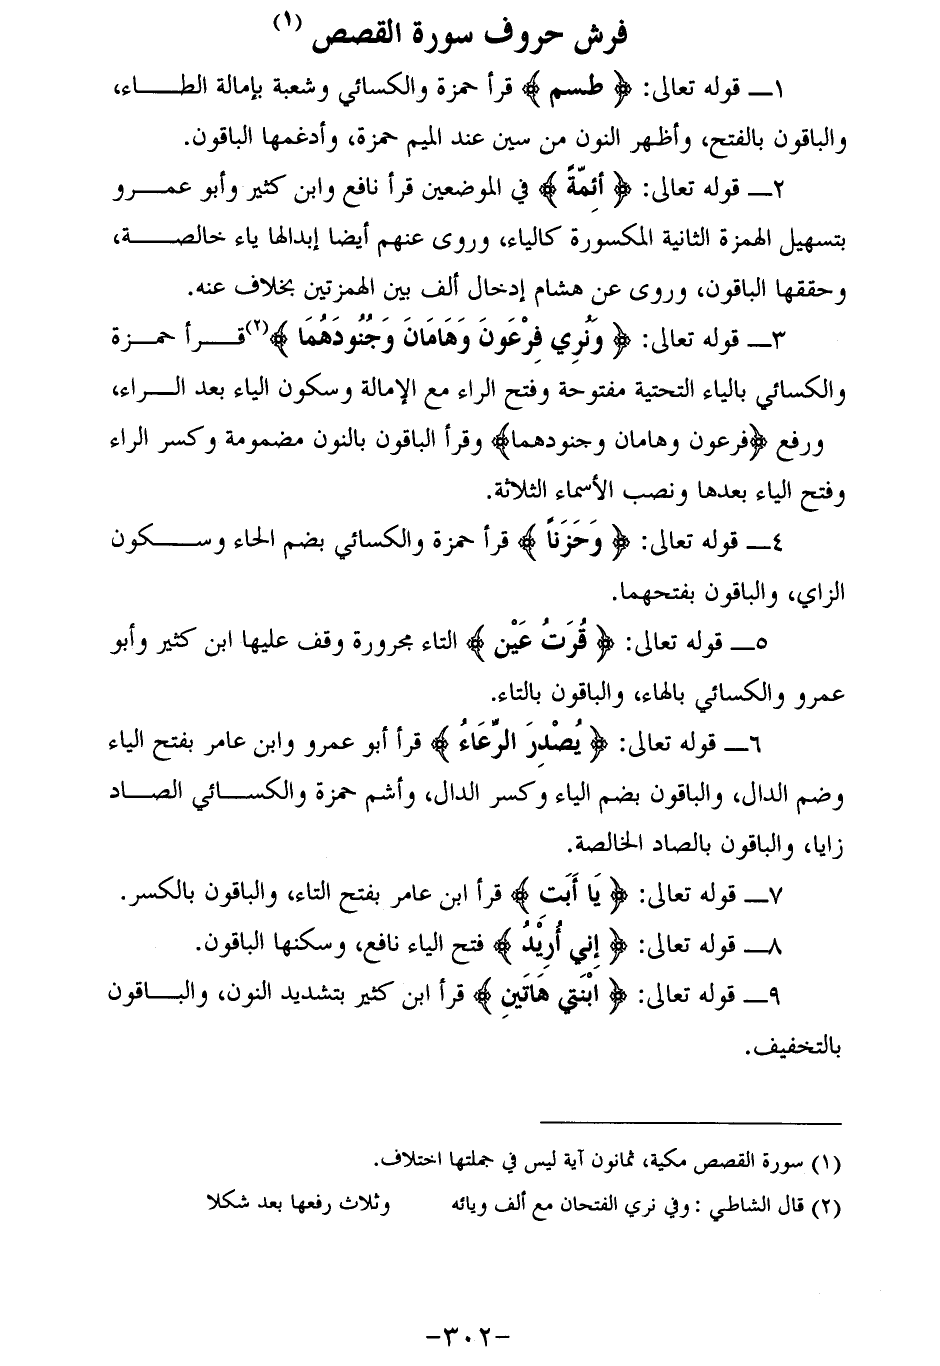 فرش حروف سورة القصص (١)
١ــ قوله تعالى: ﴿ طسم ﴾ قرأ حمزة والكسائي وشعبة بإمالة الطاء،
والباقون بالفتح، وأظهر النون من سين عند الميم حمزة، وأدغمها الباقون.
٢ــ قوله تعالى: ﴿ أَئِمّةً ﴾ في الموضعين قرأ نافع وابن كثير وأبو عمرو
بتسهيل الهمزة الثانية المكسورة كالياء، وروى عنهم أيضا إبدالها ياء خالصة،
وحققها الباقون، وروى عن هشام إدخال ألف بين الهمزتين بخلاف عنه.
٣ــ قوله تعالى: ﴿ وَنُرِي فِرْعَونَ وَهَامَانَ وَجُنُودَهُمَا ﴾(٢) قرأ حمزة
والكسائي بالياء التحتية مفتوحة وفتح الراء مع الإمالة وسكون الياء بعد الراء،
ورفع ﴿فرعون وهامان وجنودهما﴾ وقرأ الباقون بالنون مضمومة وكسر الراء
وفتح الياء بعدها ونصب الأسماء الثلاثة.
٤ــ قوله تعالى: ﴿ وَحَزَناً ﴾ قرأ حمزة والكسائي بضم الحاء وسكون
الزاي، والباقون بفتحهما.
٥ــ قوله تعالى: ﴿ قُرَتُ عَيْن ﴾ التاء مجرورة وقف عليها ابن كثير وأبو
عمرو والكسائي بالهاء، والباقون بالتاء.
٦ــ قوله تعالى: ﴿ يُصْدِرَ الرِّعَاءُ ﴾ قرأ أبو عمرو وابن عامر بفتح الياء
وضم الدال، والباقون بضم الياء وكسر الدال، وأشم حمزة والكسائي الصاد
زايا، والباقون بالصاد الخالصة.
٧ــ قوله تعالى: ﴿ يَا أَبَت ﴾ قرأ ابن عامر بفتح التاء، والباقون بالكسر.
٨ــ قوله تعالى: ﴿ إِني أُرِيْدُ ﴾ فتح الياء نافع، وسكنها الباقون.
٩ــ قوله تعالى: ﴿ ابْنَتي هَاتَينِ ﴾ قرأ ابن كثير بتشديد النون، والباقون
بالتخفيف.
(١) سورة القصص مكية، ثمانون آية ليس في جملتها اختلاف.
(٢) قال الشاطبي : وفي نري الفتحان مع ألف ويائه وثلاث رفعها بعد شكلا
-٣٠٢-